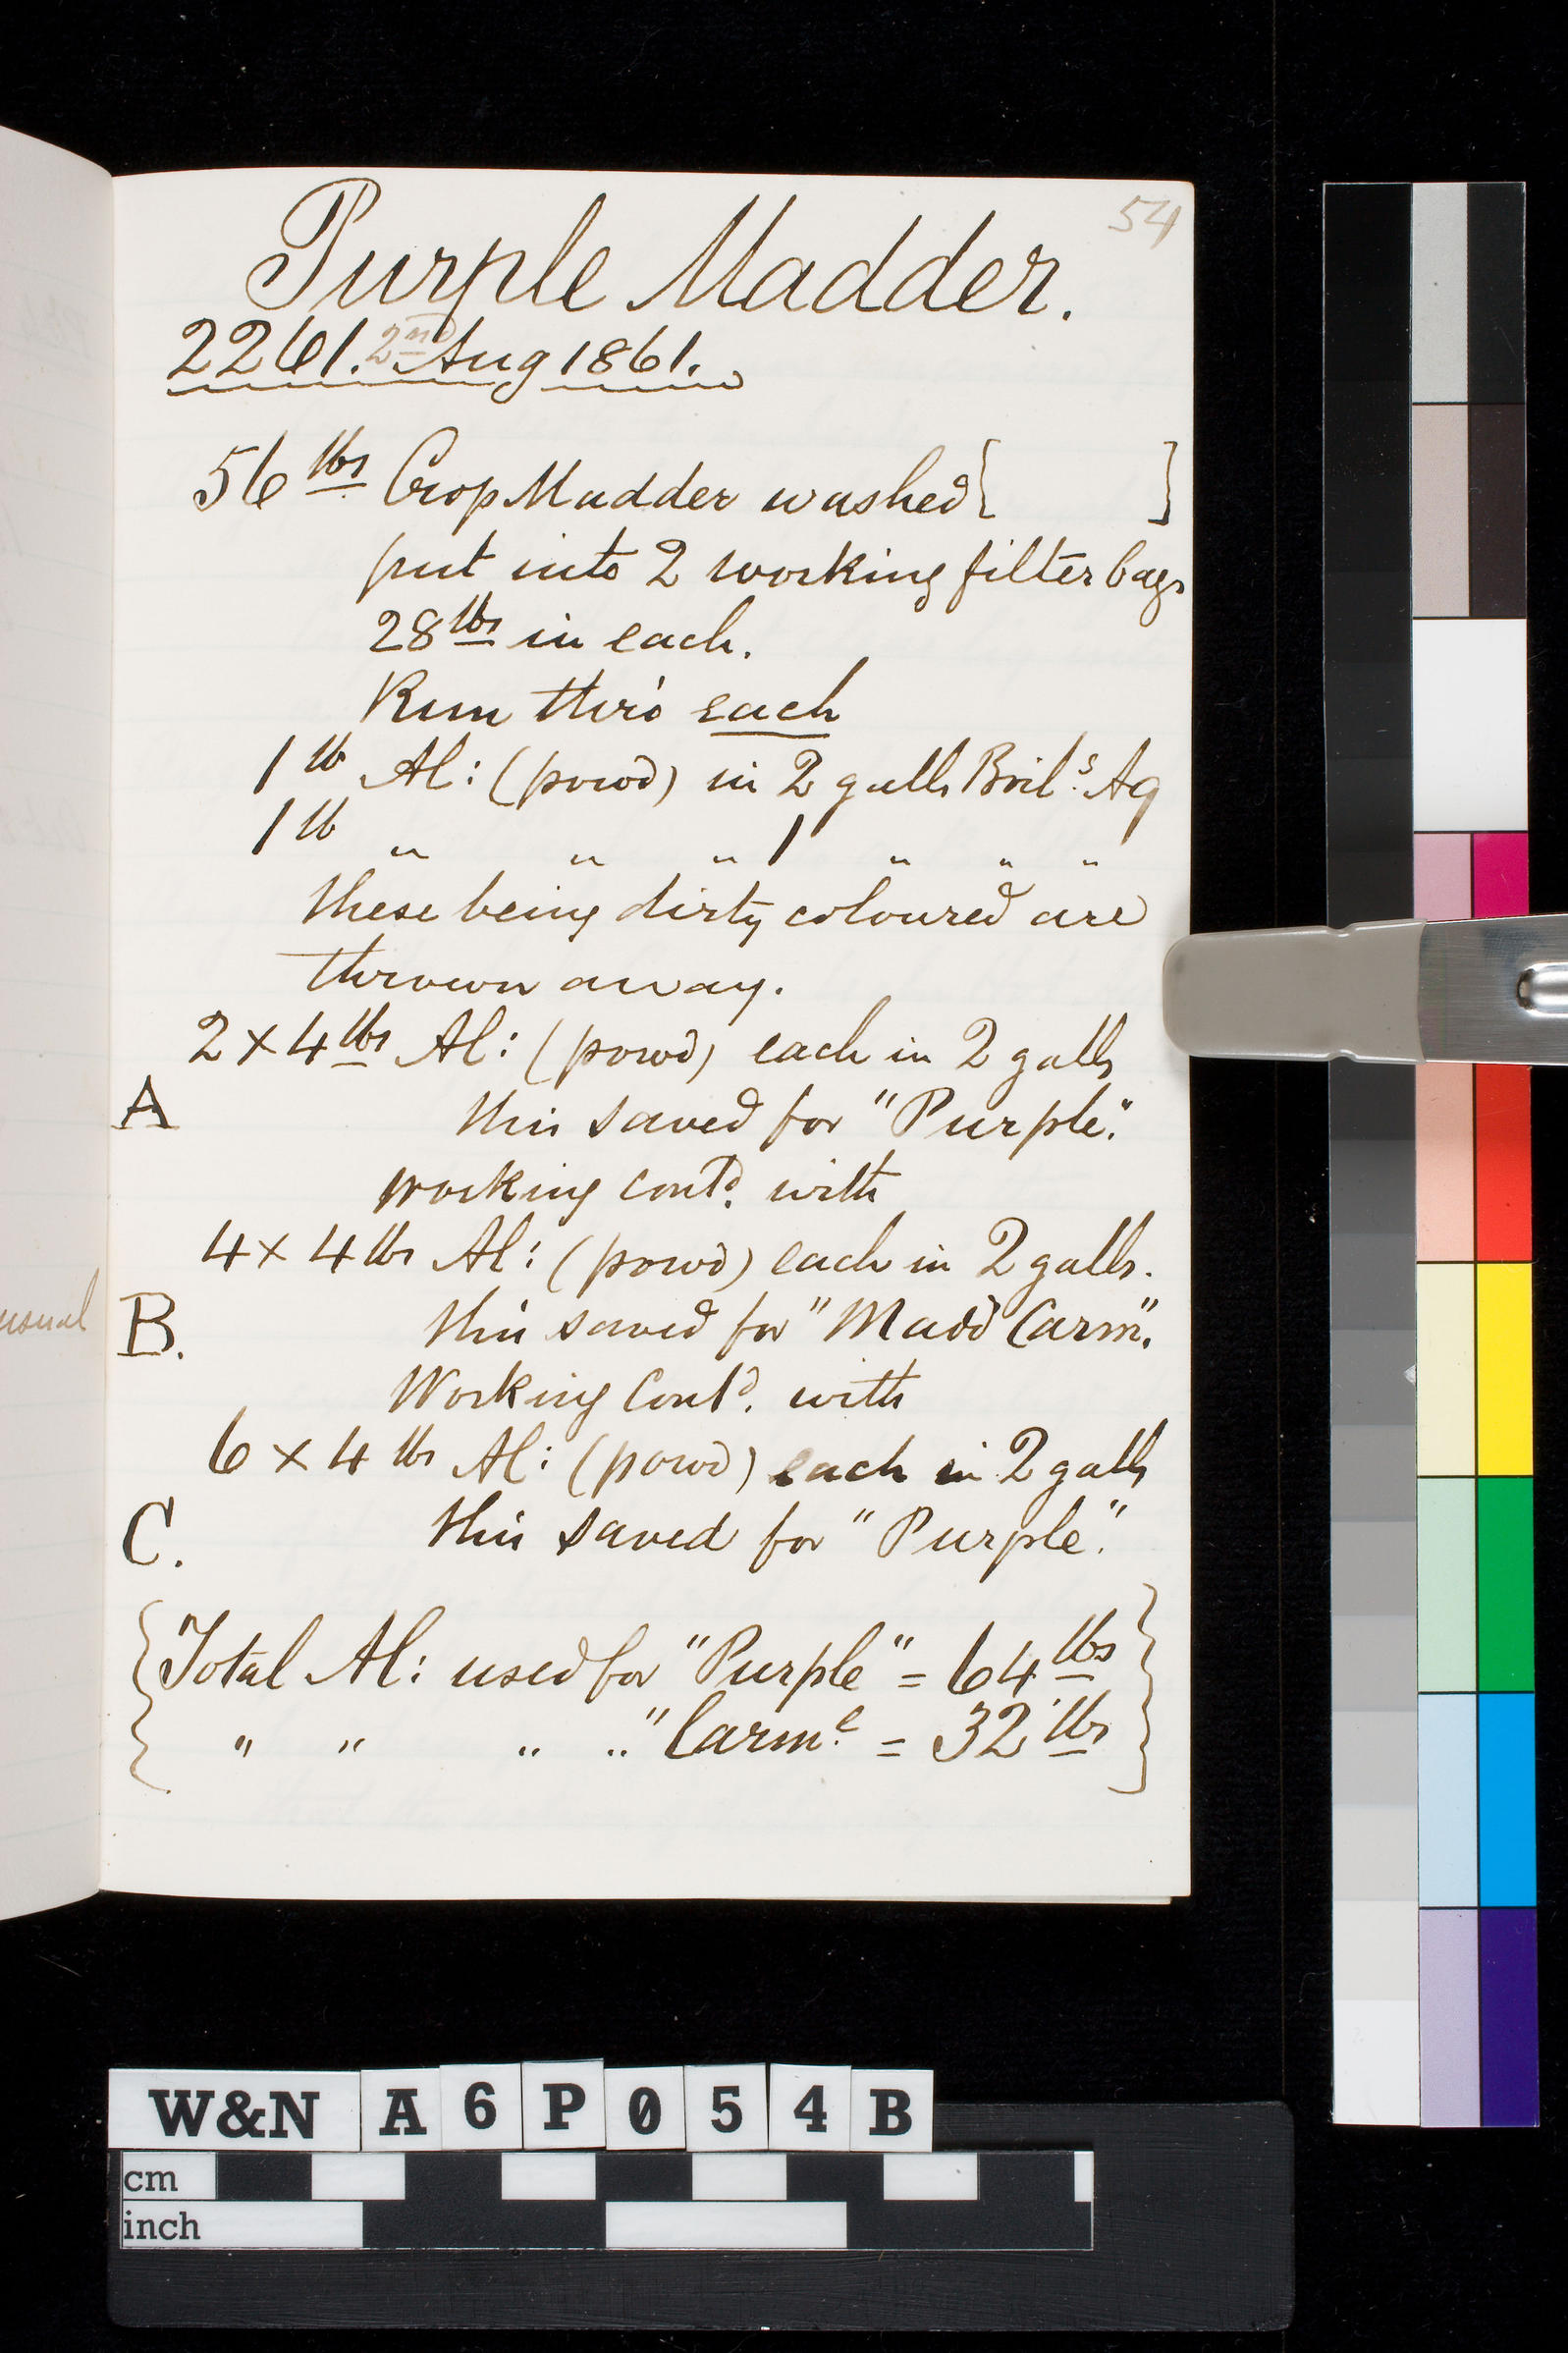 54
Purple Madder.
2261. 2nd Aug 1861.
56 lbs Crop Madder washed { ]
put into 2 working filter bags
28 lbs in each.
Run thro' each
1 lb Al: (powd) in 2 galls Boilg. Aq
1 lb " " " 1 " " "
these being dirty coloured are
thrown away.
2 x 4 lbs Al: (powd) each in 2 galls
A this saved for "Purple".
working contd. with
4 x 4 lbs Al: (powd) each in 2 galls.
B. this saved for "Madd Carm".
Working Contd. with
6 x 4 lbs Al: (powd) each in 2 galls
C. this saved for "Purple".
{Total Al: used for "Purple" = 64 lbs}
{ " " " " "Carme = 32 lbs}
usual
W&N A6P054B
cm
inch